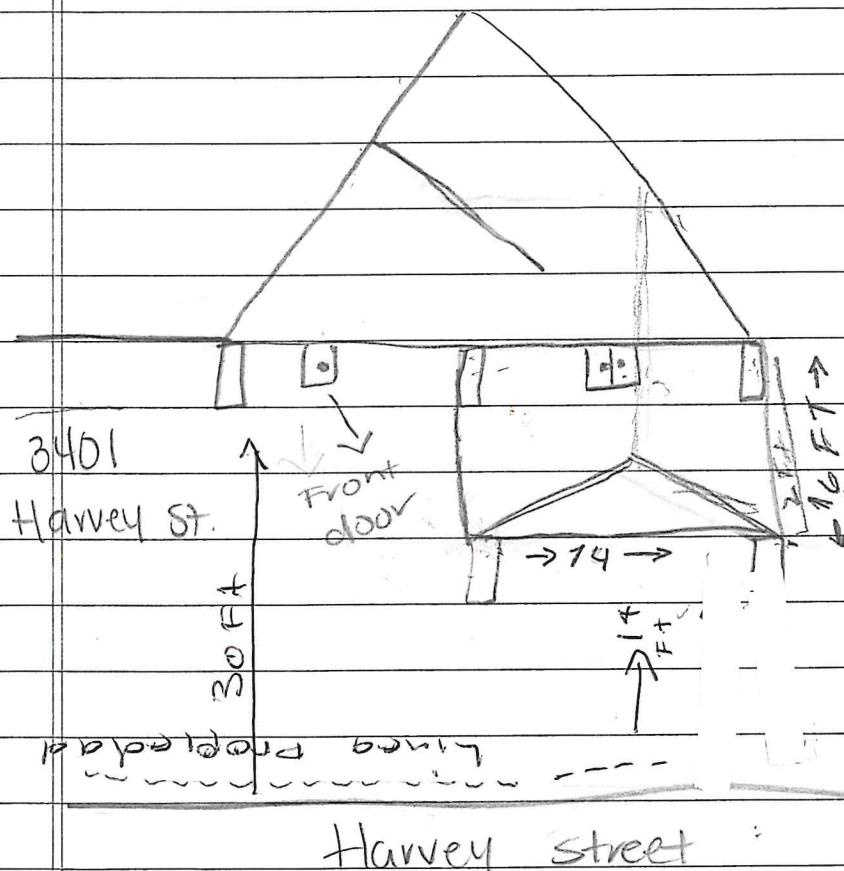 16 FT
3401
Harvey St.
Front
door
14
30 Ft
14
Ft
Linea Propiedad
Harvey street